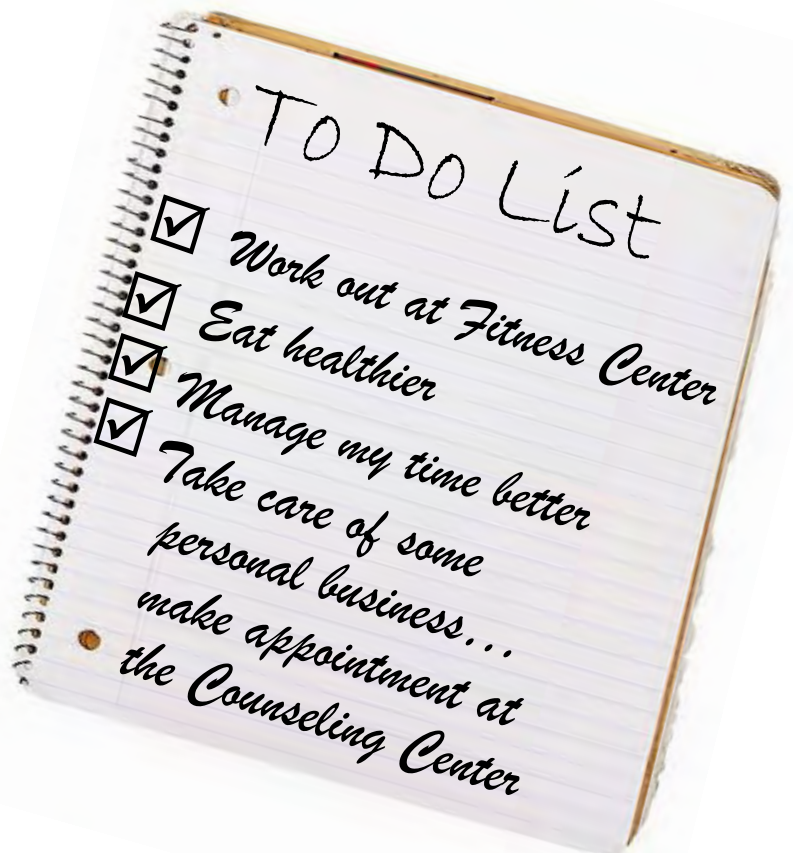 To Do List
Work out at Fitness Center
Eat healthier
Manage my time better
Take care of some
personal business...
make appointment at
the Counseling Center